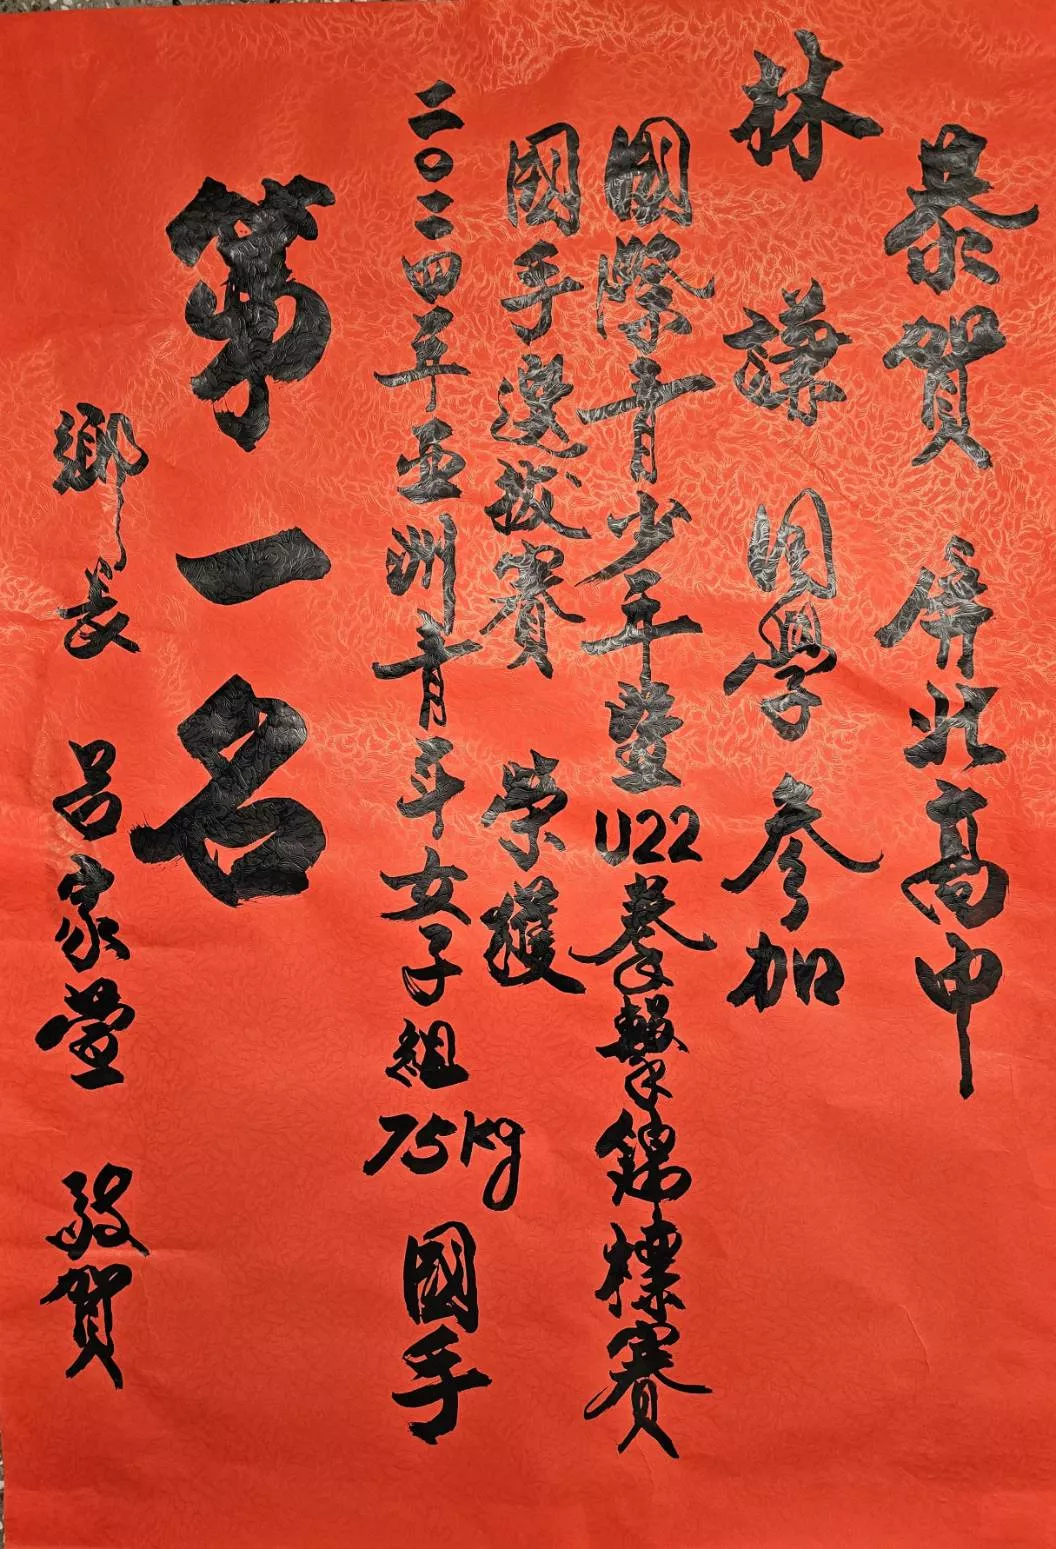 恭賀 屏北高中
林謙同學參加
國際青少年暨U22拳擊錦標賽
國手選拔賽 榮獲
二〇二四年亞洲青年女子組75kg國手
第一名
鄉長 呂家萱 敬賀